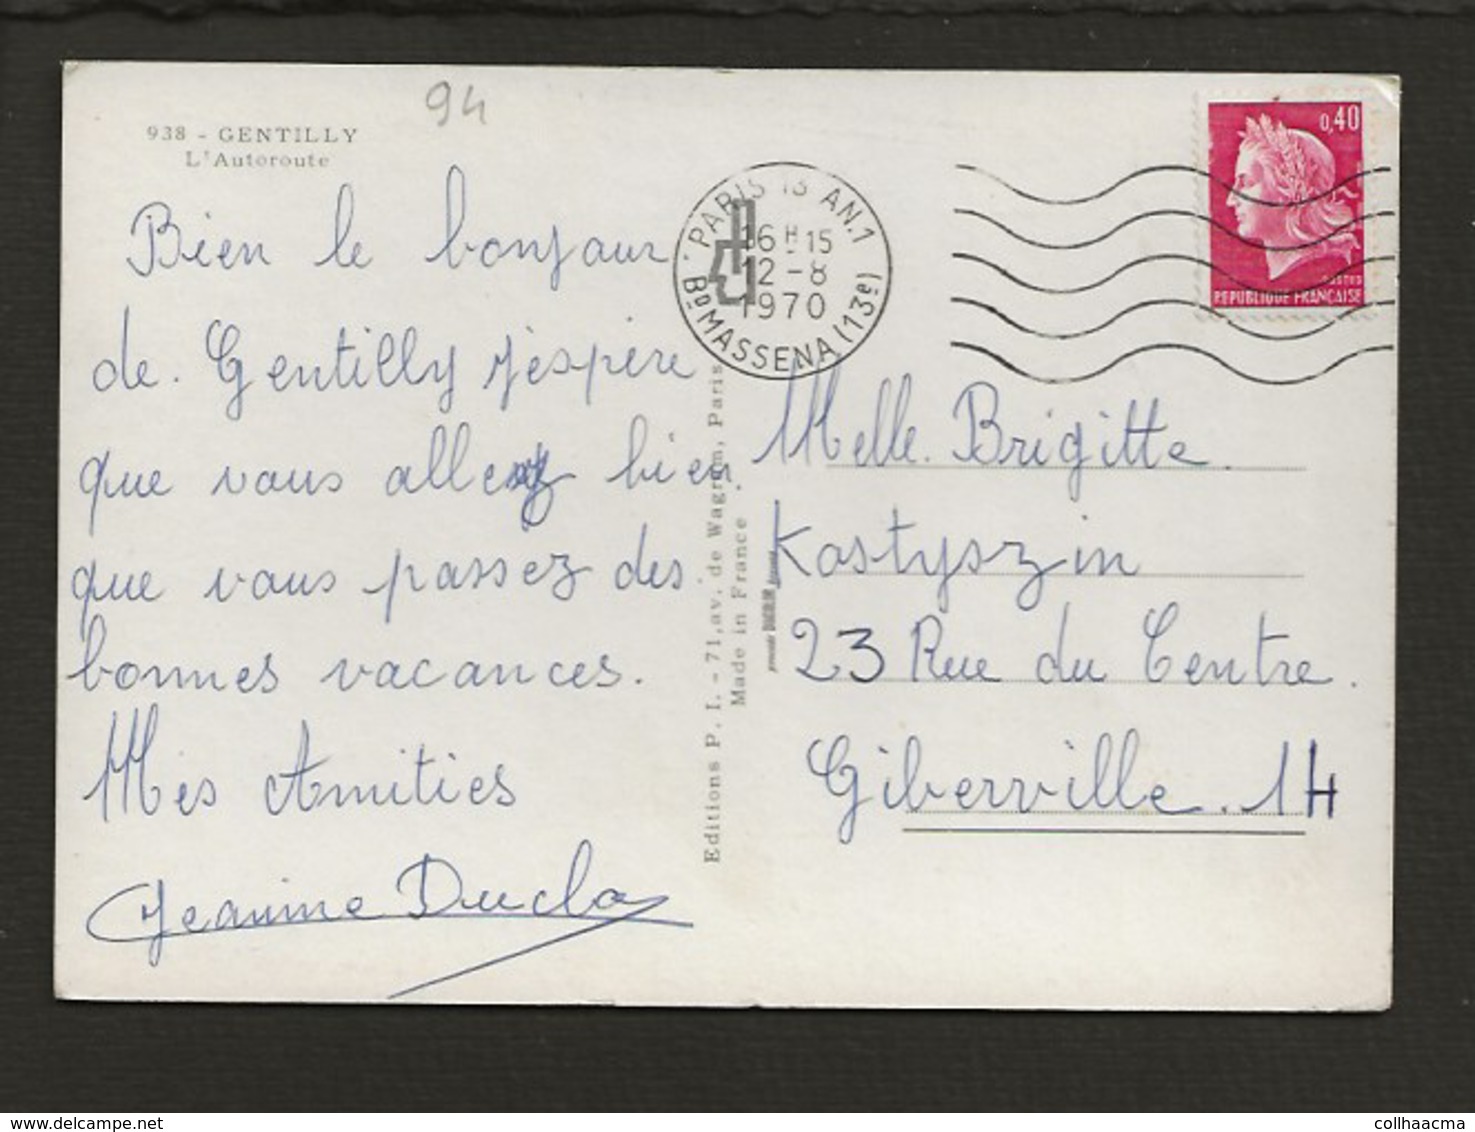 94
938 - GENTILLY
L'Autoroute
Bien le bonjour
de. Gentilly j'espère
que vous allez bien
que vous passez des
bonnes vacances.
Mes Amitiés
Jeanine Duclos
Editions P. I. - 71, av. de Wagram, Paris
Made in France
PARIS 13 AN.1
16H15
12-8
1970
BD MASSENA (13e)
0,40
POSTES
REPUBLIQUE FRANÇAISE
Melle. Brigitte.
Kostyszin
23 Rue du Centre.
Giberville. 14
collhaacma